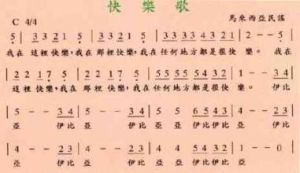 快樂歌
C 4/4 馬來西亞民謠
5 | 3 3 2 1 5 | 3 3 2 1 5 | 3 3 3 3 3 4 3 2 1 | 2 - - 5 |
我在 這裡快樂,我在 那裡快樂,我在任何地方都是很快樂。 我在
2 2 1 7 5 | 2 2 1 7 5 | 5 5 5 5 4 3 2 | 1 - - 3 4 |
這裡快樂,我在 那裡快樂,我在任何地方都是很快樂。 伊比
5 - - 3 4 | 5 - - 3 4 | 5 5 6 5 4 3 1 | 2 - - 2 3 |
亞 伊比 亞 伊比 亞 伊比 亞 伊比
4 - - 2 3 | 4 - - 2 3 | 4 4 5 4 3 2 | 1 - - 0 |
亞 伊比 亞 伊比 亞 伊比 亞